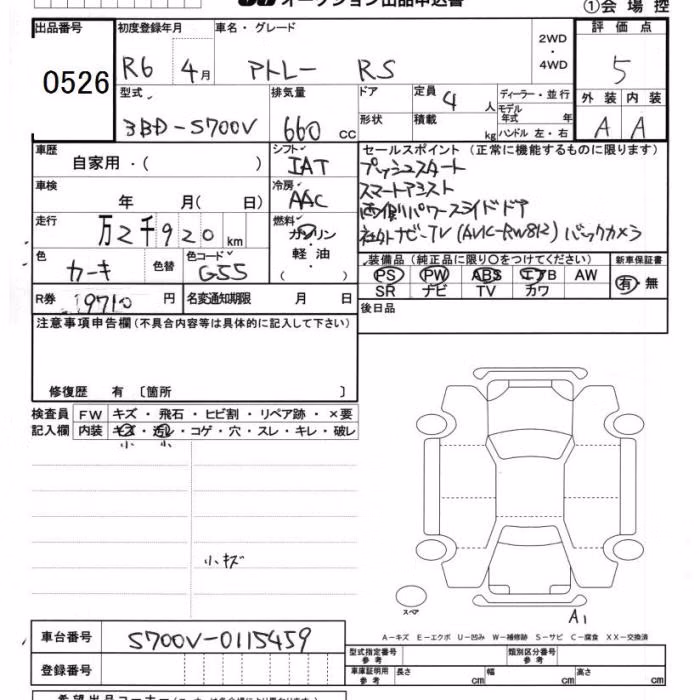 オークション出品申込書
①会場控
出品番号 初度登録年月 車名・グレード 評価点
0526 R6 4月 アトレー RS 2WD・4WD 5
型式 排気量 ドア 定員 ディーラー・並行 外装 内装
3BD-S700V 660cc 形状 積載 4人 kg モデル年式 年 ハンドル 左・右 A A
車歴 自家用・( ) シフト IAT セールスポイント (正常に機能するものに限ります)
車検 年 月( 日) 冷房 AAC プッシュスタート
スマートアシスト
走行 万2千920km 燃料 ガソリン・軽油・( ) 両側パワースライドドア
社外ナビ-TV (AVIC-RW812) バックカメラ
色 カーキ 色替 色コード G55 装備品 (純正品に限り○をつけてください) 新車保証書
PS PW ABS エアB AW 有・無
R券 19710円 名変通知期限 月 日 SR ナビ TV カワ
注意事項申告欄 (不具合内容等は具体的に記入して下さい) 後日品
修復歴 有 〔箇所 〕
検査員 FW キズ・飛石・ヒビ割・リペア跡・×要
記入欄 内装 キズ・汚レ・コゲ・穴・スレ・キレ・破レ
小 小
小キズ
スペア
A1
A-キズ E-エクボ U-凹み W-補修跡 S-サビ C-腐食 XX-交換済
車台番号 S700V-0115459 型式指定番号 参考 類別区分番号 参考
登録番号 車庫証明用 参考 長さ cm 幅 cm 高さ cm
希望出品コーナー